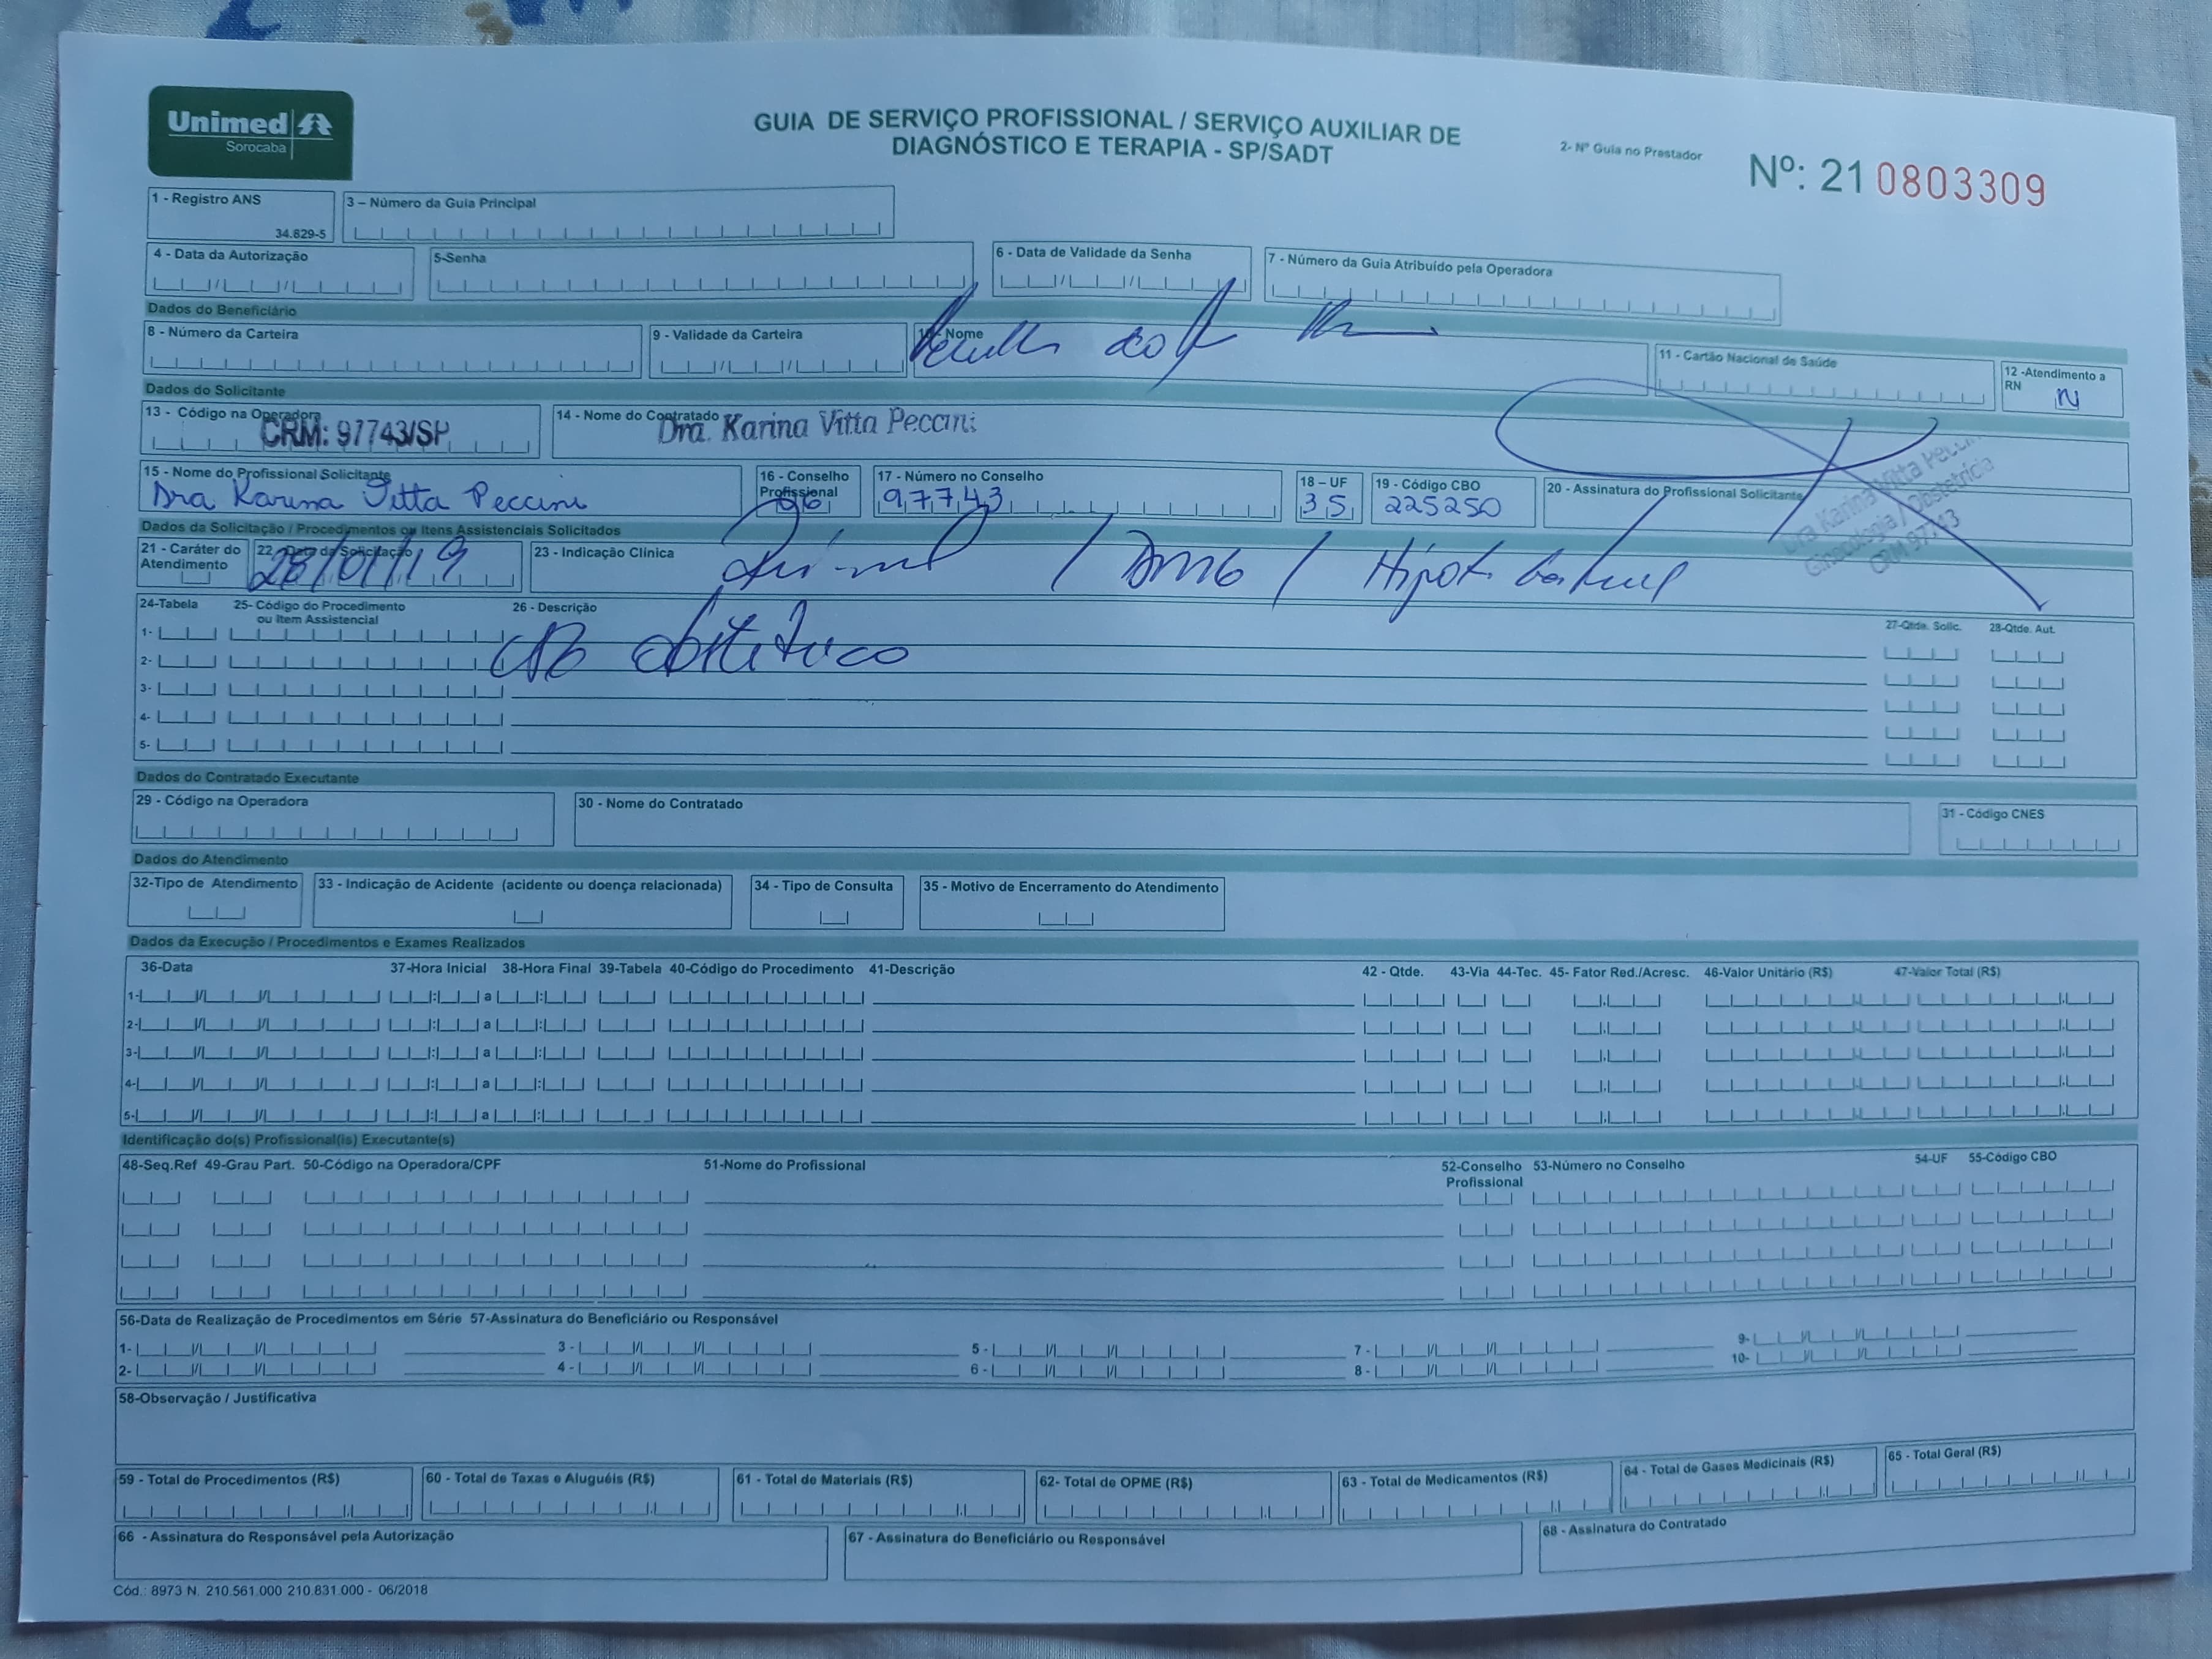 Unimed
Sorocaba
GUIA DE SERVIÇO PROFISSIONAL / SERVIÇO AUXILIAR DE
DIAGNÓSTICO E TERAPIA - SP/SADT
2- Nº Guia no Prestador
Nº: 21 0803309
1 - Registro ANS
34.629-5
3 – Número da Guia Principal
4 - Data da Autorização
5-Senha
6 - Data de Validade da Senha
7 - Número da Guia Atribuído pela Operadora
Dados do Beneficiário
8 - Número da Carteira
9 - Validade da Carteira
10 - Nome
11 - Cartão Nacional de Saúde
12 -Atendimento a
RN
N
Dados do Solicitante
13 - Código na Operadora
CRM: 97743/SP
14 - Nome do Contratado
Dra. Karina Vitta Peccini
15 - Nome do Profissional Solicitante
Dra Karina Vitta Peccini
16 - Conselho
Profissional
06
17 - Número no Conselho
97743
18 – UF
35
19 - Código CBO
225250
20 - Assinatura do Profissional Solicitante
Dra Karina Vitta Peccini
Ginecologia / Obstetrícia
CRM 97743
Dados da Solicitação / Procedimentos ou Itens Assistenciais Solicitados
21 - Caráter do
Atendimento
22 - Data da Solicitação
28/01/19
23 - Indicação Clínica
/ DMG /
24-Tabela
25- Código do Procedimento
ou Item Assistencial
26 - Descrição
27-Qtde. Solic.
28-Qtde. Aut.
1-
2-
obstetrico
3-
4-
5-
Dados do Contratado Executante
29 - Código na Operadora
30 - Nome do Contratado
31 - Código CNES
Dados do Atendimento
32-Tipo de Atendimento
33 - Indicação de Acidente (acidente ou doença relacionada)
34 - Tipo de Consulta
35 - Motivo de Encerramento do Atendimento
Dados da Execução / Procedimentos e Exames Realizados
36-Data 37-Hora Inicial 38-Hora Final 39-Tabela 40-Código do Procedimento 41-Descrição 42 - Qtde. 43-Via 44-Tec. 45- Fator Red./Acresc. 46-Valor Unitário (R$) 47-Valor Total (R$)
1- a
2- a
3- a
4- a
5- a
Identificação do(s) Profissional(is) Executante(s)
48-Seq.Ref 49-Grau Part. 50-Código na Operadora/CPF 51-Nome do Profissional 52-Conselho 53-Número no Conselho 54-UF 55-Código CBO
Profissional
56-Data de Realização de Procedimentos em Série 57-Assinatura do Beneficiário ou Responsável
1- 3 - 5 - 7 - 9-
2- 4 - 6 - 8 - 10-
58-Observação / Justificativa
59 - Total de Procedimentos (R$)
60 - Total de Taxas e Aluguéis (R$)
61 - Total de Materiais (R$)
62- Total de OPME (R$)
63 - Total de Medicamentos (R$)
64 - Total de Gases Medicinais (R$)
65 - Total Geral (R$)
66 - Assinatura do Responsável pela Autorização
67 - Assinatura do Beneficiário ou Responsável
68 - Assinatura do Contratado
Cód.: 8973 N. 210.561.000 210.831.000 - 06/2018